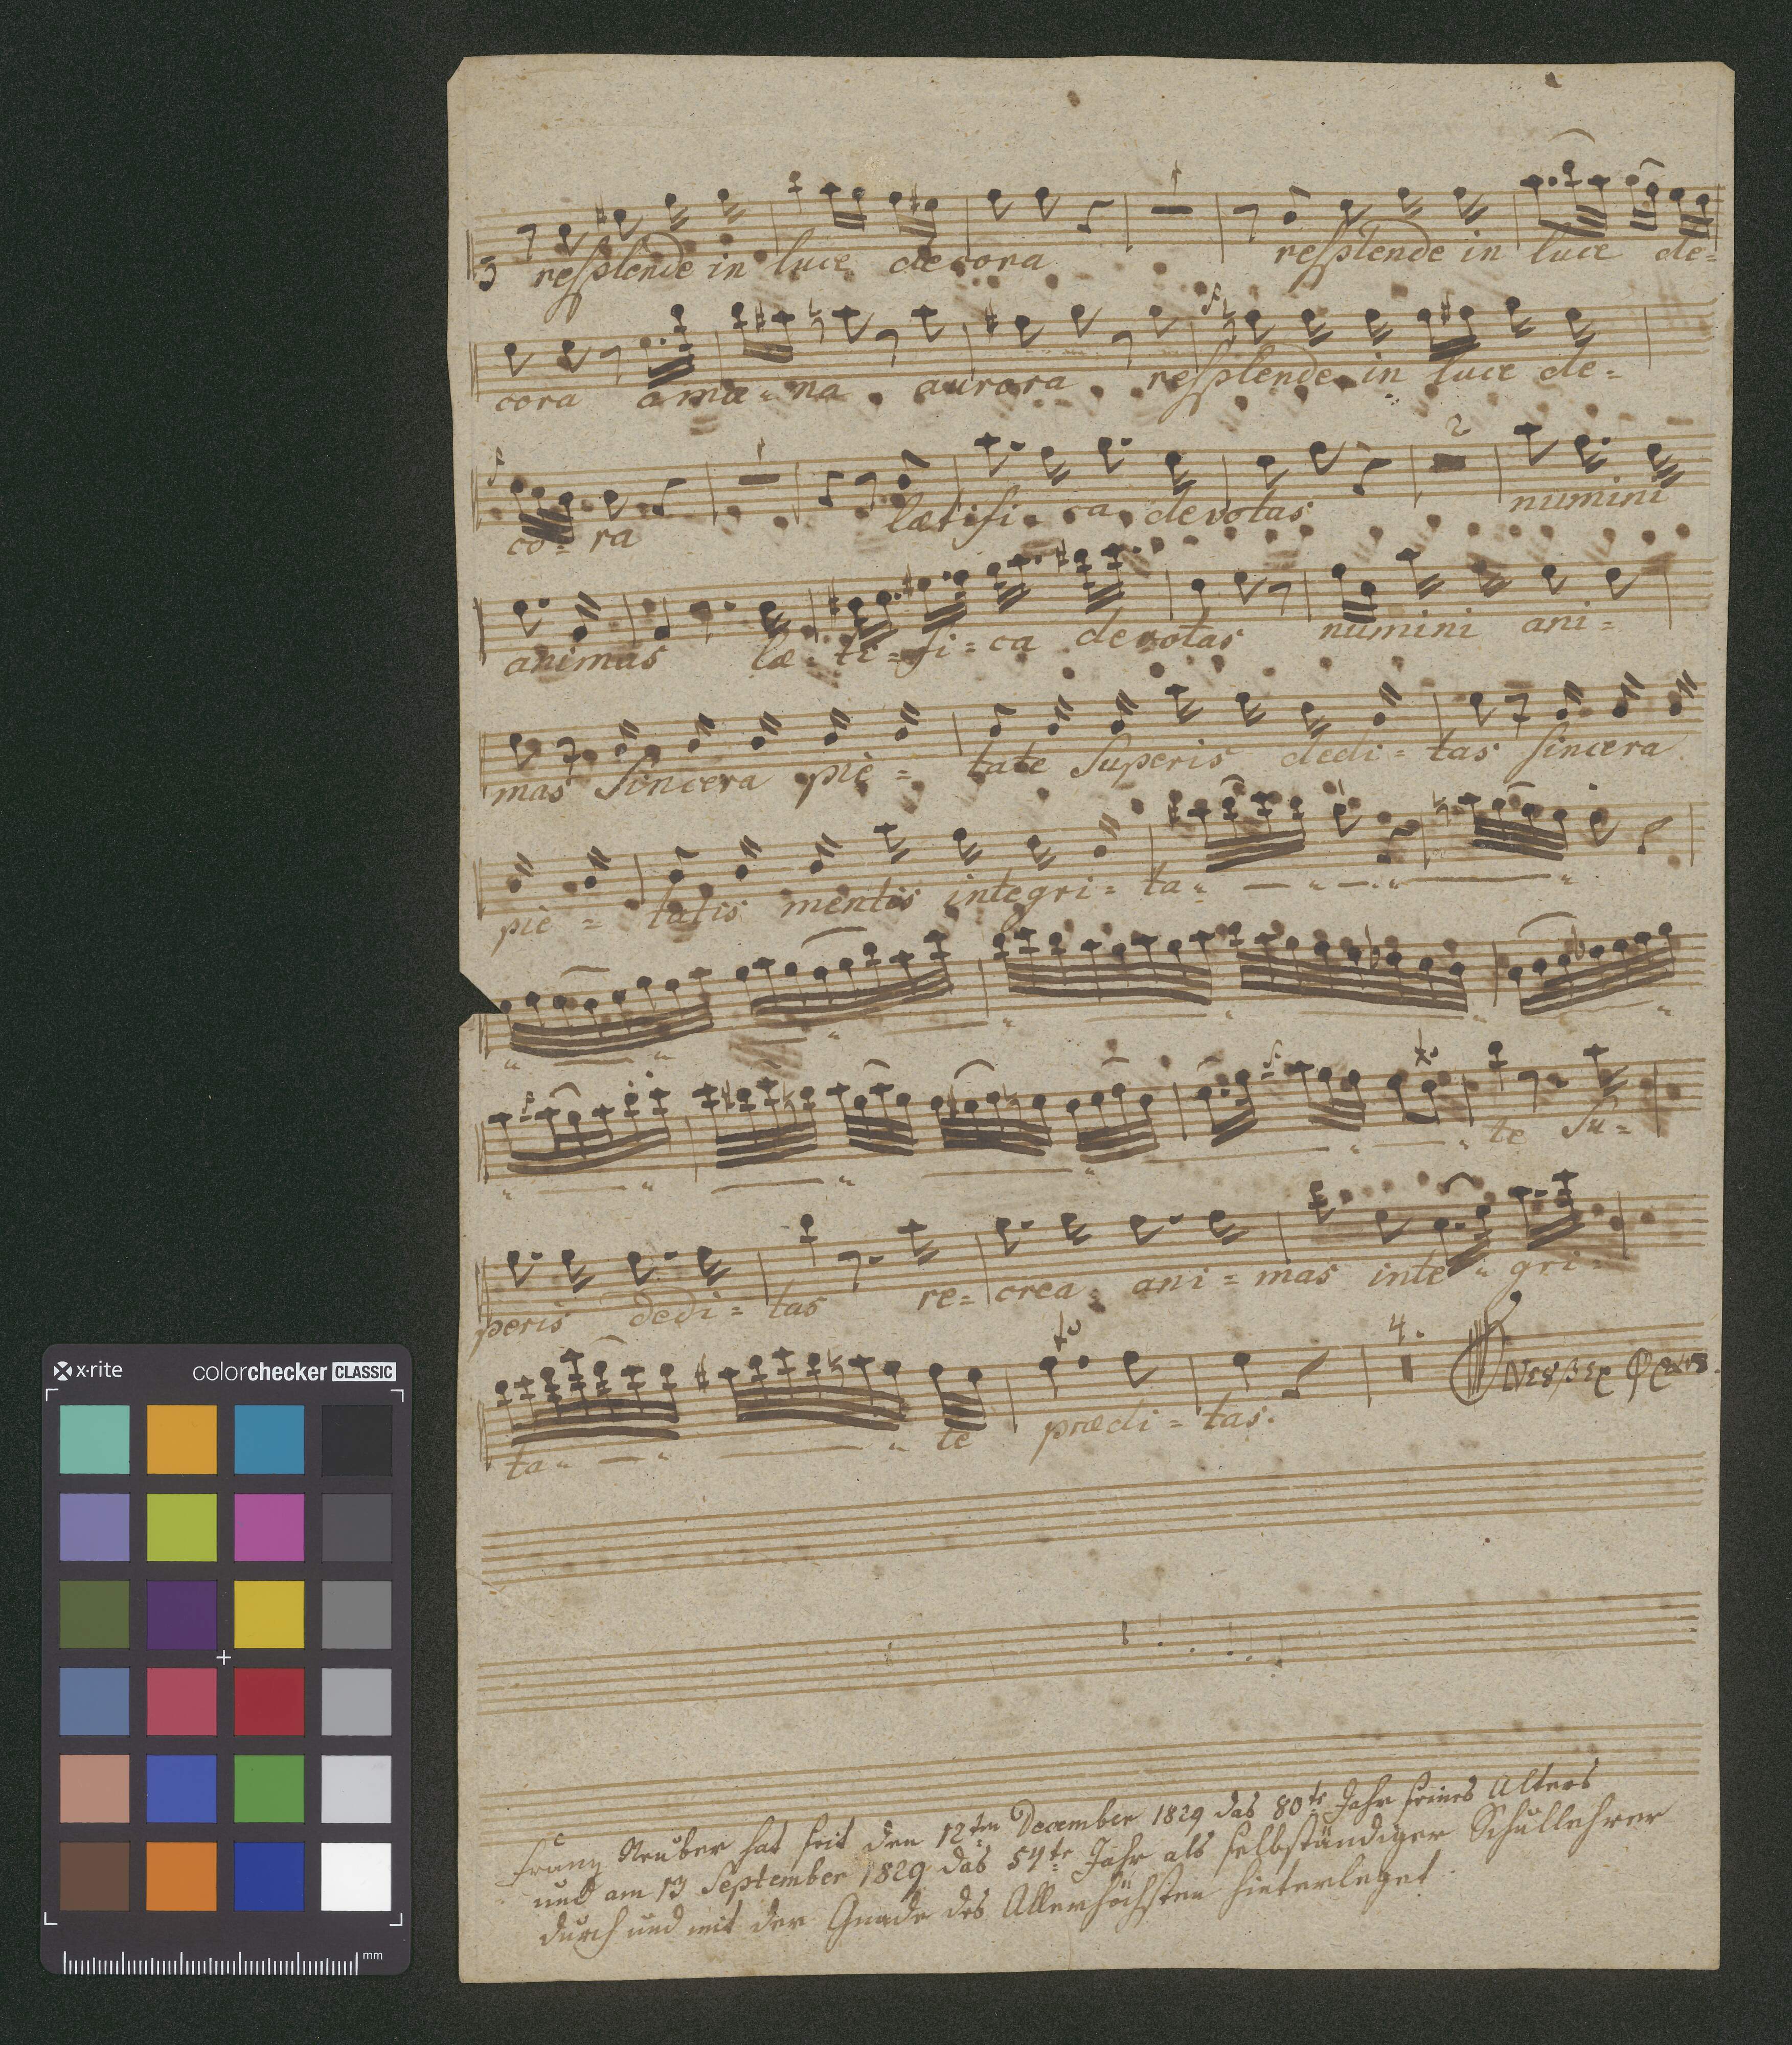 resplende in luce decora resplende in luce de=
cora amæ-na aurora resplende in luce de=
co=ra lætifi-ca devotas numini
animas læ=ti=fi=ca devotas numini ani=
mas Sincera piè= tate Superis dedi=tas sincera
piè= tatis mentis integri=ta
te Su=
peris dedi=tas re=crea ani=mas inte-gri=
ta te prædi=tas.
4.
x·rite colorchecker CLASSIC
mm
Franz Neuber hat seit den 12ten December 1829 das 80te Jahr seines Alters
und am 13 September 1829 das 54te Jahr als selbständiger Schullehrer
durch und mit der Gnade des Allerhöchsten hinterleget